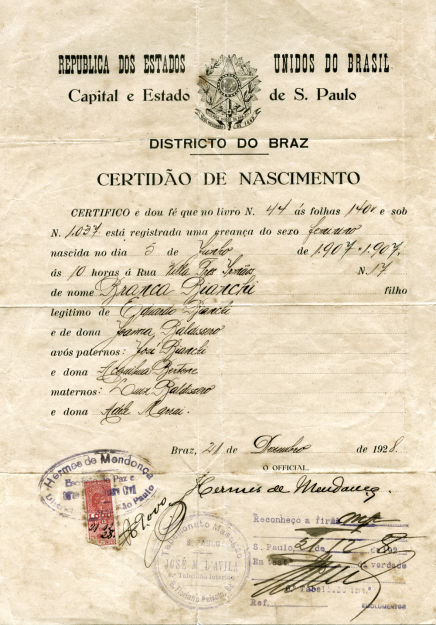 REPUBLICA DOS ESTADOS UNIDOS DO BRASIL
Capital e Estado de S. Paulo
DISTRICTO DO BRAZ
CERTIDÃO DE NASCIMENTO
CERTIFICO e dou fé que no livro N. 44 ás folhas 140v e sob
N. 1.037 está registrada uma creança do sexo feminino
nascida no dia 5 de Junho de 1.907 - 1.907,
ás 10 horas á Rua Villa N. 17
de nome Branca Bianchi filho
legitimo de Eduardo Bianchi
e de dona Joanna Baldissero
avós paternos: José Bianchi
e dona Bertone
maternos: Baldissero
e dona Adele
Braz, 21 de Dezembro de 1928.
O OFFICIAL.
Hermes de Mendonça.
Hermes de Mendonça
Paz e
São Paulo
Reconheço a firma
S. Paulo, de 192
Em test. verdade
Tabelli
Ref.
EMOLUMENTOS
S. PAULO
JOSÉ M. D'AVILA
Tabellião Interino